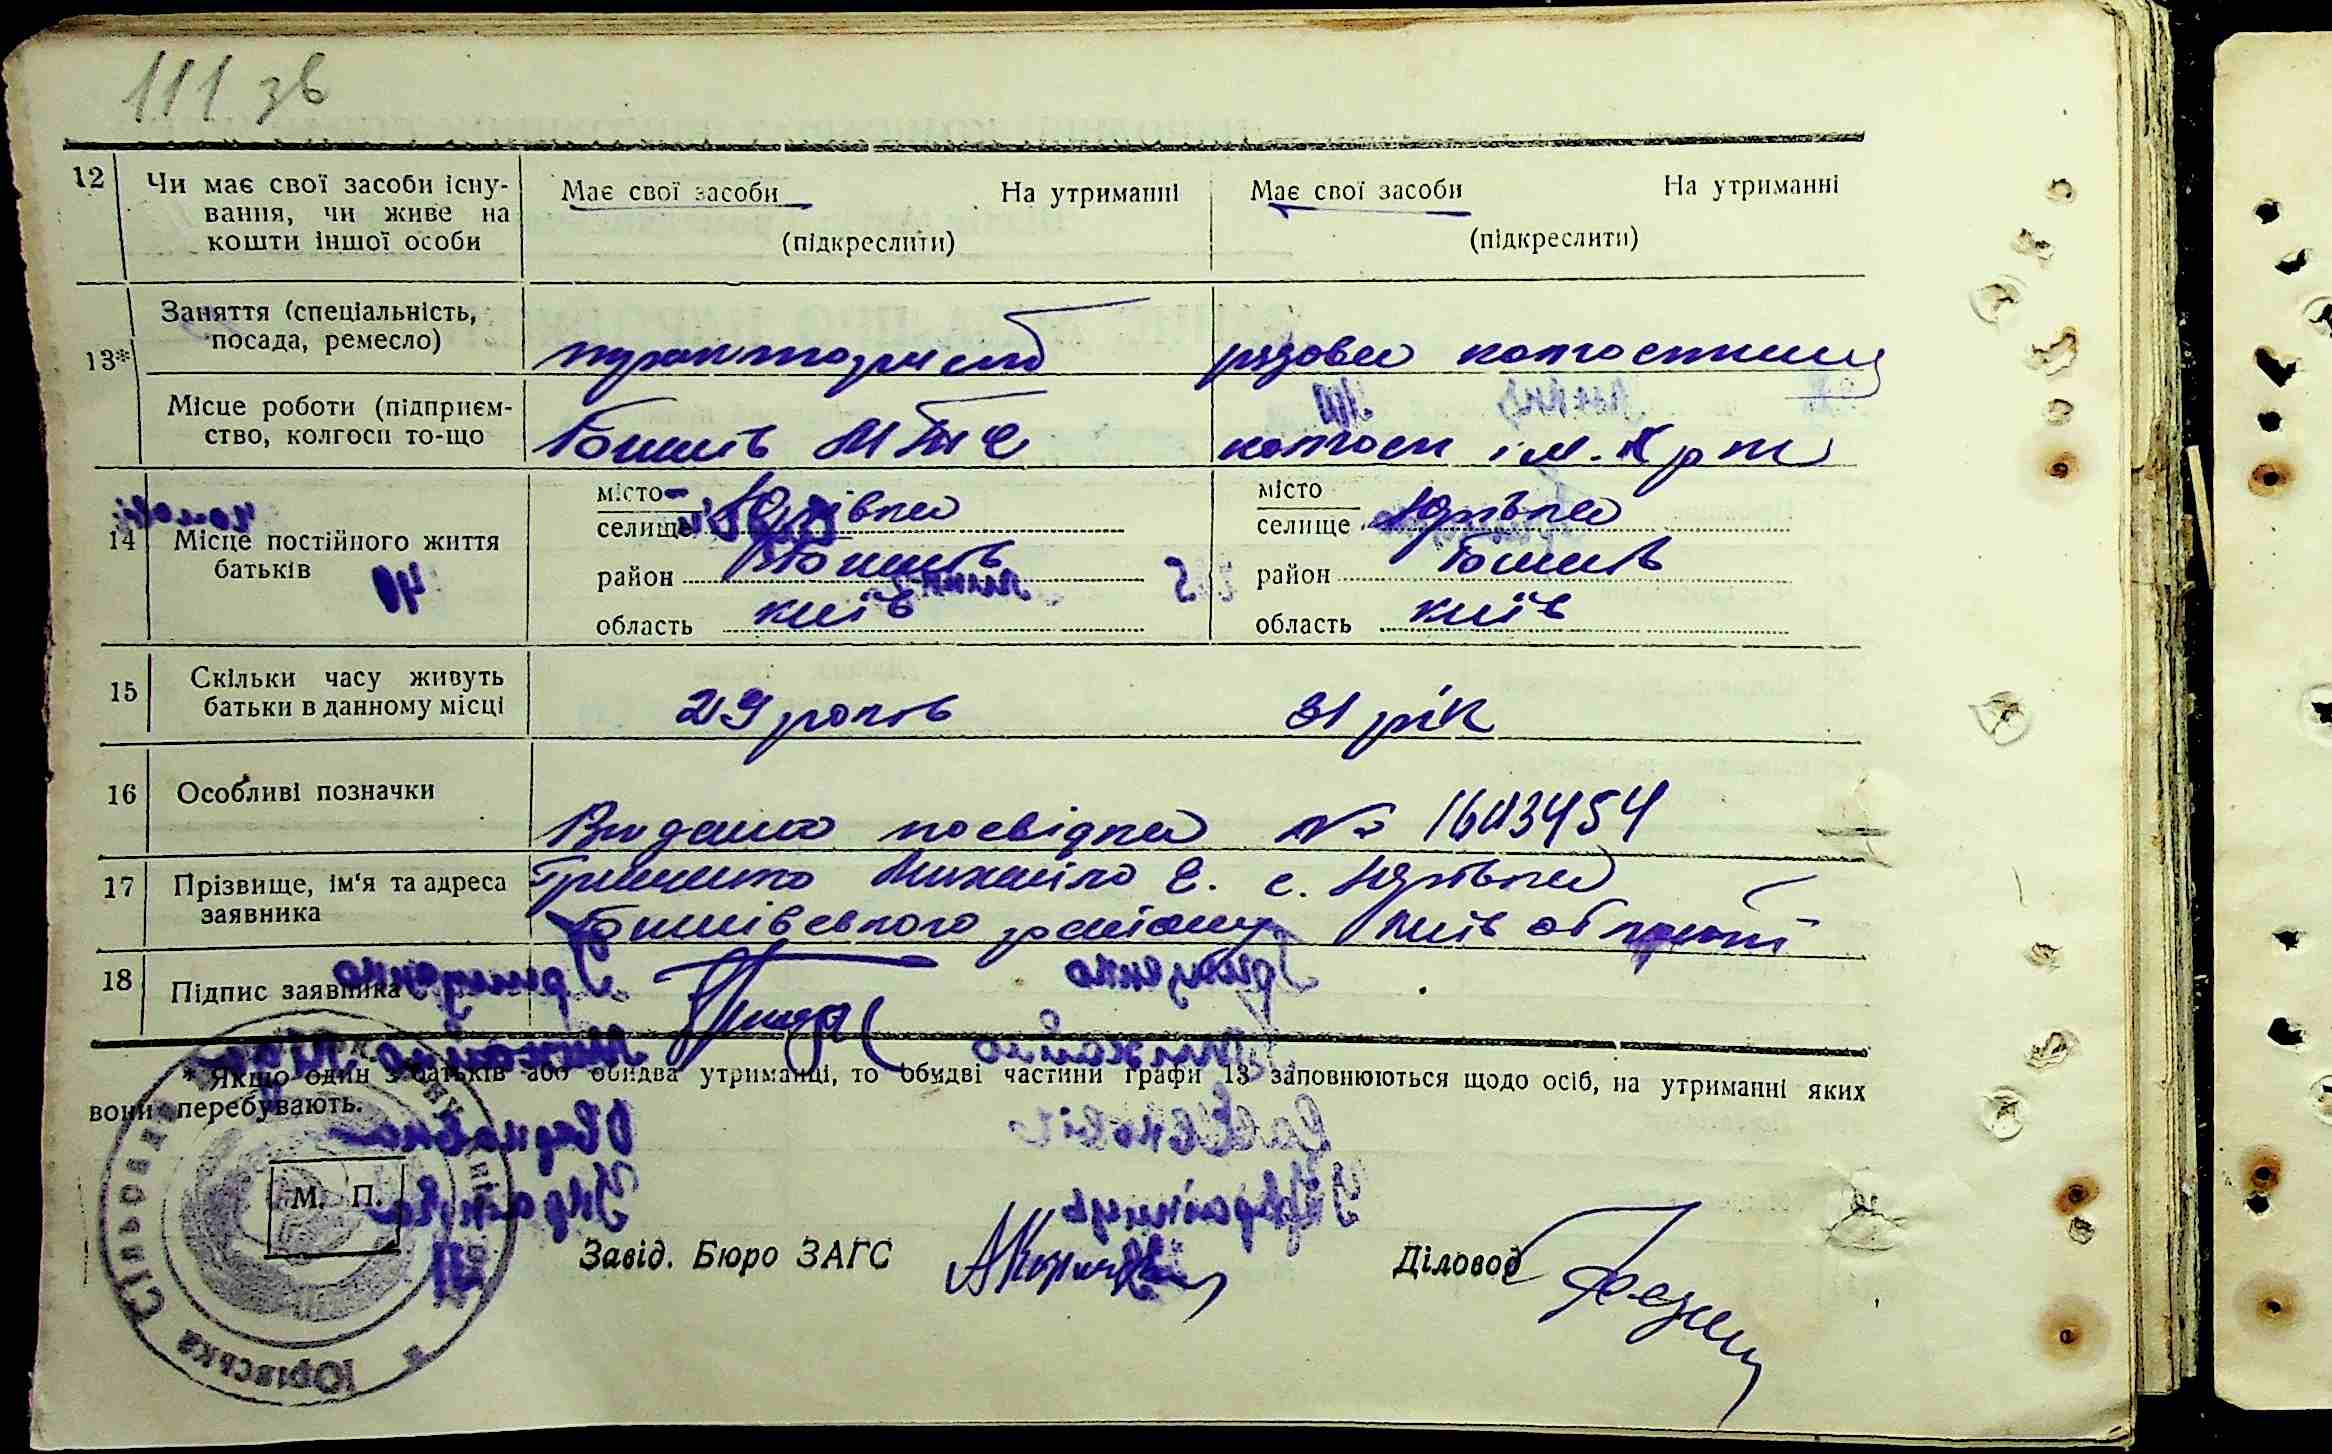 111 зв
12 Чи має свої засоби існу-
вання, чи живе на
кошти іншої особи
Має свої засоби На утриманні
(підкреслити)
Має свої засоби На утриманні
(підкреслити)
13* Заняття (спеціальність,
посада, ремесло)
тракторист
рядова колгоспниця
Місце роботи (підприєм-
ство, колгосп то-що
МТС
колгосп ім.
14 Місце постійного життя
батьків
місто
селище Юрівка
район
область Київ
місто
селище Юрівка
район
область Київ
15 Скільки часу живуть
батьки в данному місці
29 років
31 рік
16 Особливі позначки
Видана посвідка №
17 Прізвище, ім'я та адреса
заявника
Грищенко Михайло Є. с. Юрівка
району Київ області
18 Підпис заявника
* Якщо один з батьків або обидва утриманці, то обидві частини графи 13 заповнюються щодо осіб, на утриманні яких
вони перебувають.
М. П.
Юрівська Сільська
Завід. Бюро ЗАГС
Діловод